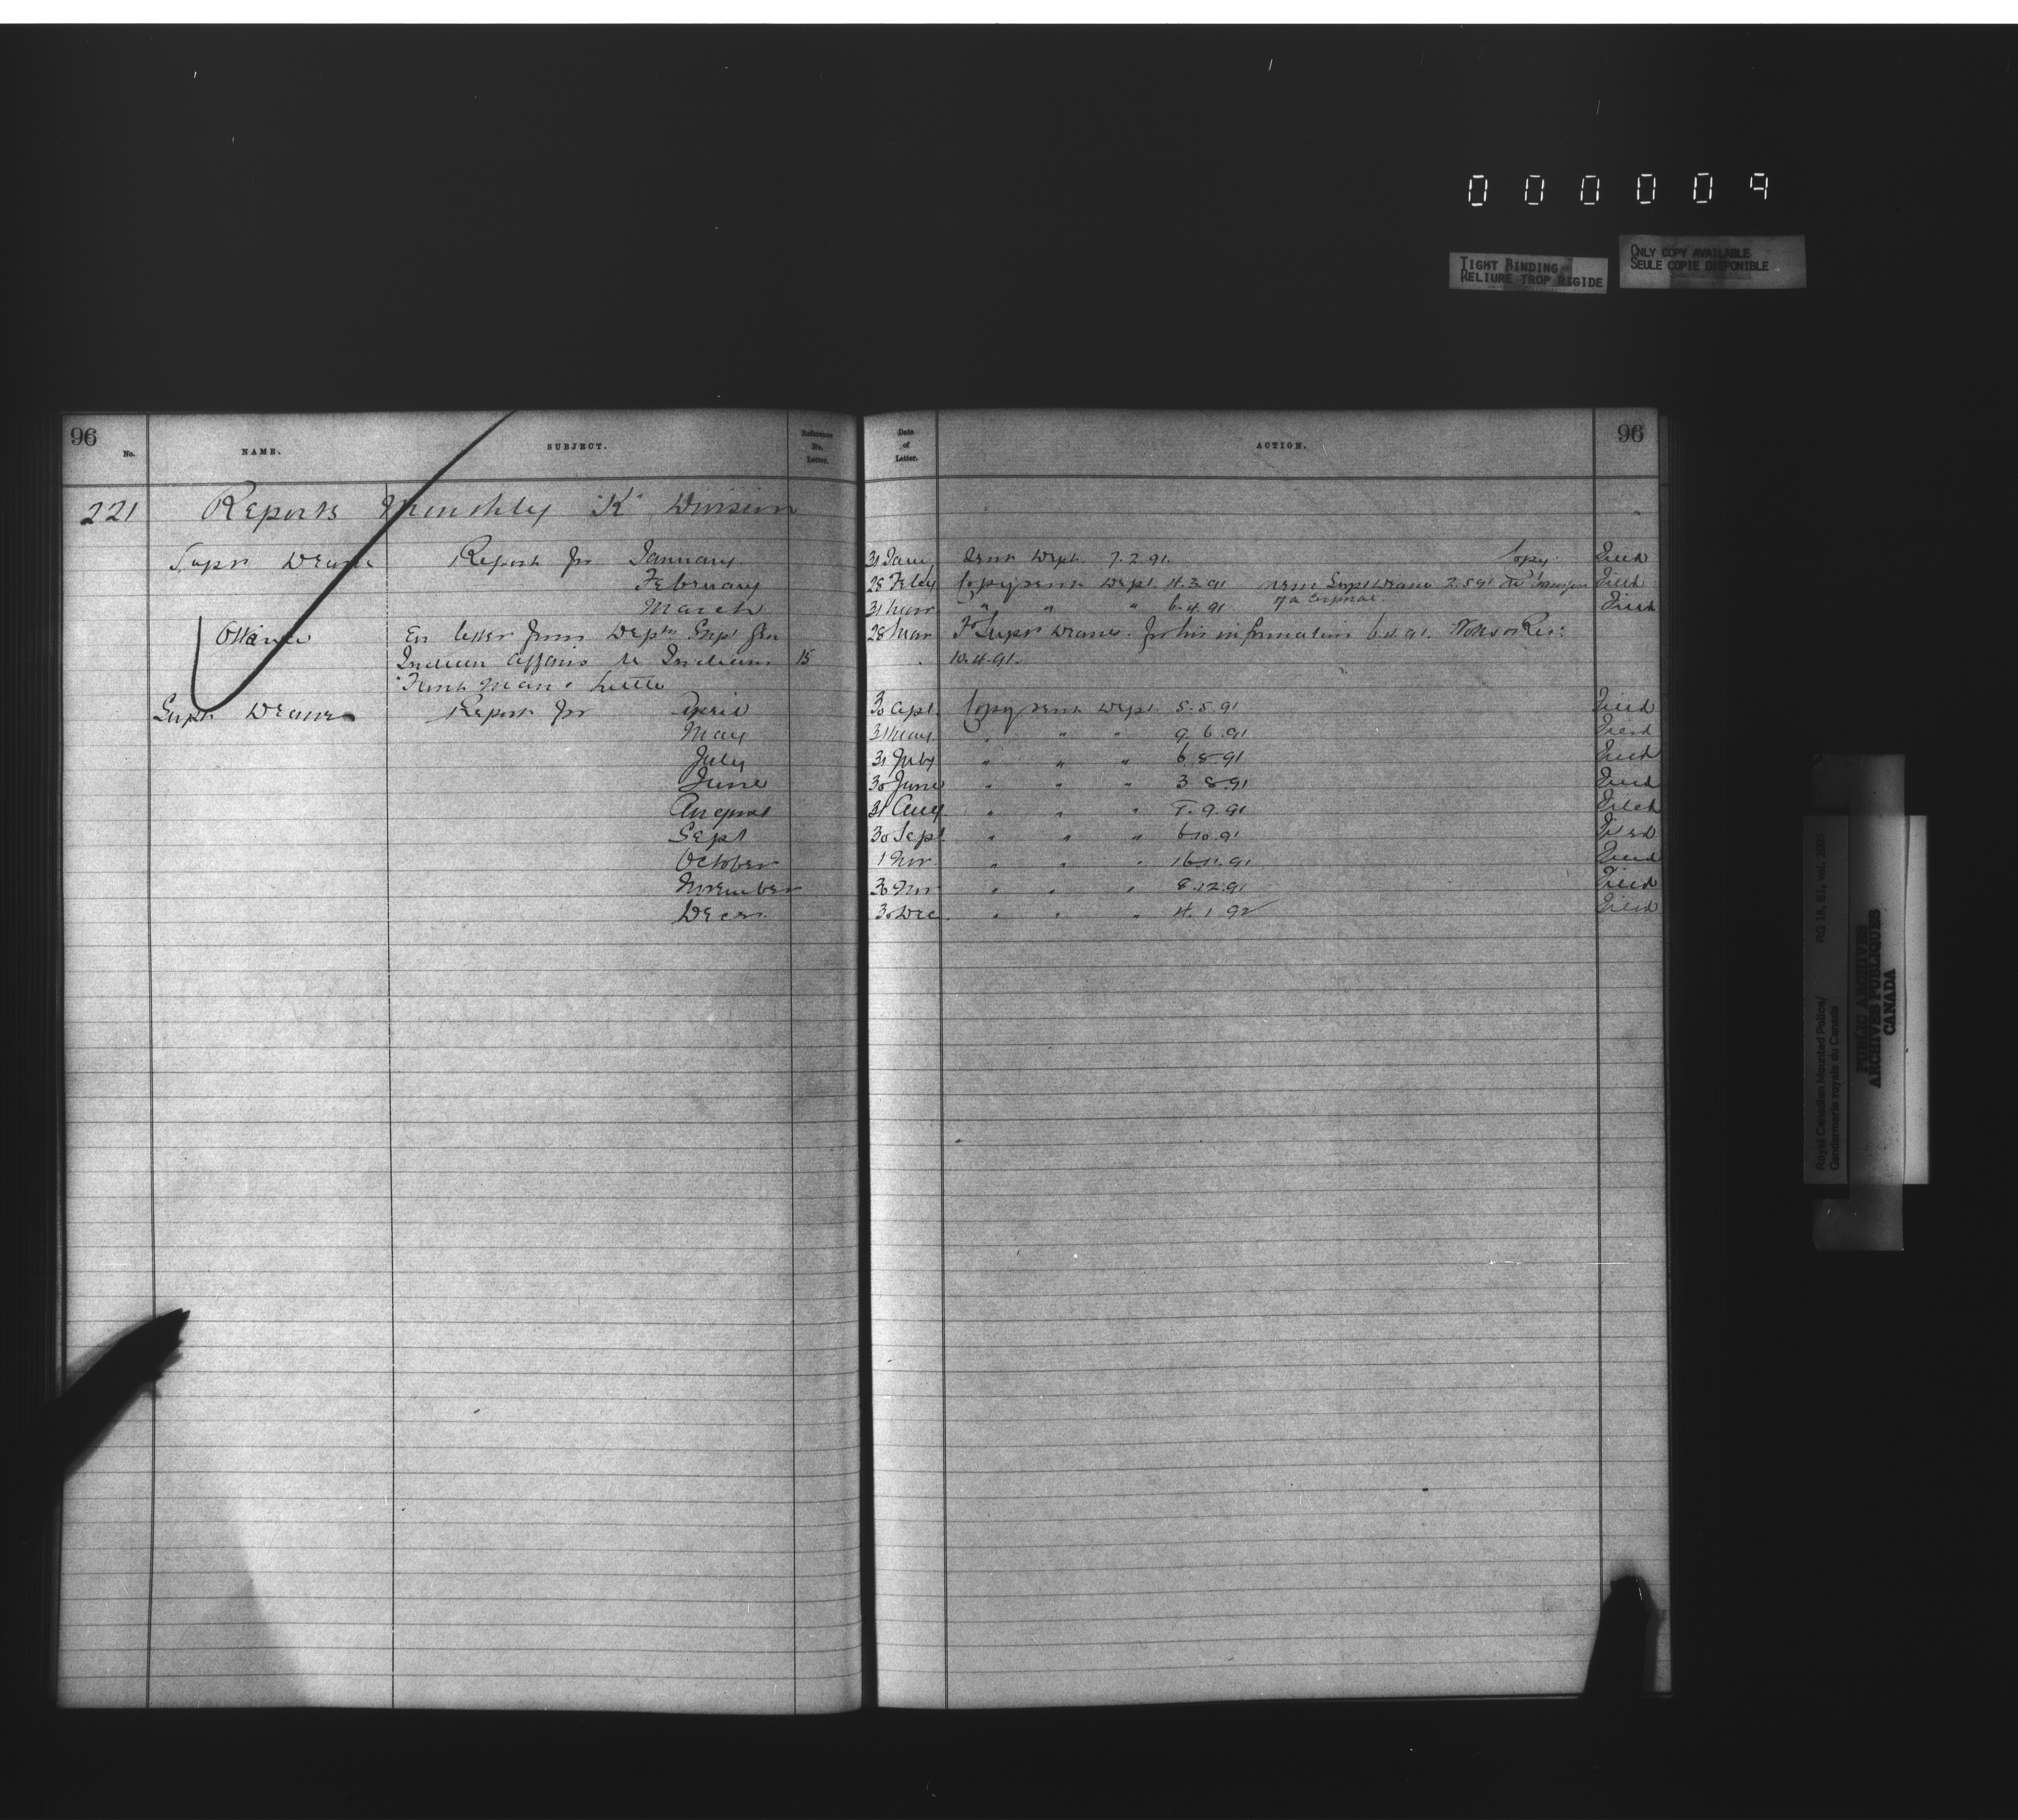 000009
TIGHT BINDING
RELIURE TROP RIGIDE
ONLY COPY AVAILABLE
SEULE COPIE DISPONIBLE
96
No. NAME. SUBJECT. Reference No. Letter.
Date of Letter. ACTION. 96
221 Reports Monthly "K" Division
Supt Deane Report for January 31 Jany Sent Dept 7.2.91. Copy Filed
February 28 Feby Copy sent Dept. 4.3.91 Supt Deane 2.5.91 Filed
March 31 Mar " " " 6.4.91 Filed
Ottawa En letter from Dept Supt Gen 28 Mar To Supt Deane for his information 6.4.91.
Indian Affairs re Indians 15 10.4.91.
Supt Deane Report for April 30 Apl. Copy sent Dept. 5.5.91 Filed
May 31 May " " " 9.6.91 Filed
July 31 July " " " 6.8.91 Filed
June 30 June " " " 3.8.91 Filed
August 31 Aug " " " 9.91 Filed
Sept 30 Sept. " " " 6.10.91 Filed
October 1 Nov " " " 16.11.91 Filed
November 30 Nov " " " 8.12.91 Filed
Decr. 30 Dec. " " " 4.1.92 Filed
Royal Canadian Mounted Police/ RG 18, B1, vol.
Gendarmerie royale du Canada
PUBLIC ARCHIVES
ARCHIVES PUBLIQUES
CANADA